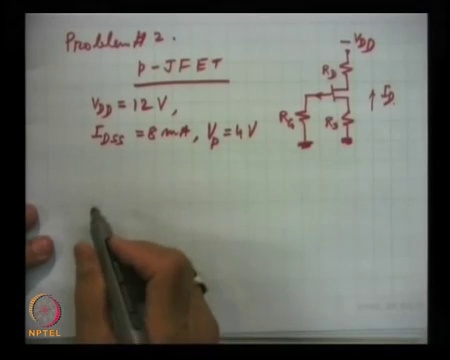 Problem # 2.
p-JFET
V_DD = 12 V,
I_DSS = 8 mA, V_p = 4 V
-V_DD
R_D
I_D.
R_G
R_S
NPTEL